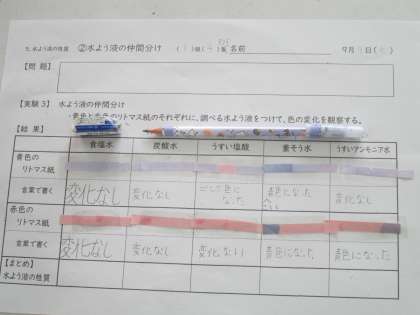 5. 水よう液の性質 ②水よう液の仲間分け ( )組( )番 名前 9月 日( )
【問 題】
【実験3】 水よう液の仲間分け
・青色と赤色のリトマス紙のそれぞれに、調べる水よう液をつけて、色の変化を観察する。
【結 果】 食塩水 炭酸水 うすい塩酸 重そう水 うすいアンモニア水
青色の
リトマス紙
言葉で書く 変化なし 変化なし 色に なった 青色になった 変化なし
赤色の
リトマス紙
言葉で書く 変化なし 変化なし 変化なし 青色になった 青色になった
【まとめ】
水よう液の性質